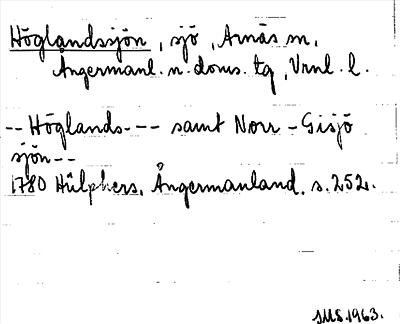 Höglandssjön, sjö, Arnäs sn.
Ångermanl. n. doms. tg, Vrnl. l.
-- Höglands- -- samt Norr-Gisjö
sjön --
1780 Hülphers, Ångermanland. s. 252.
SMS. 1963.